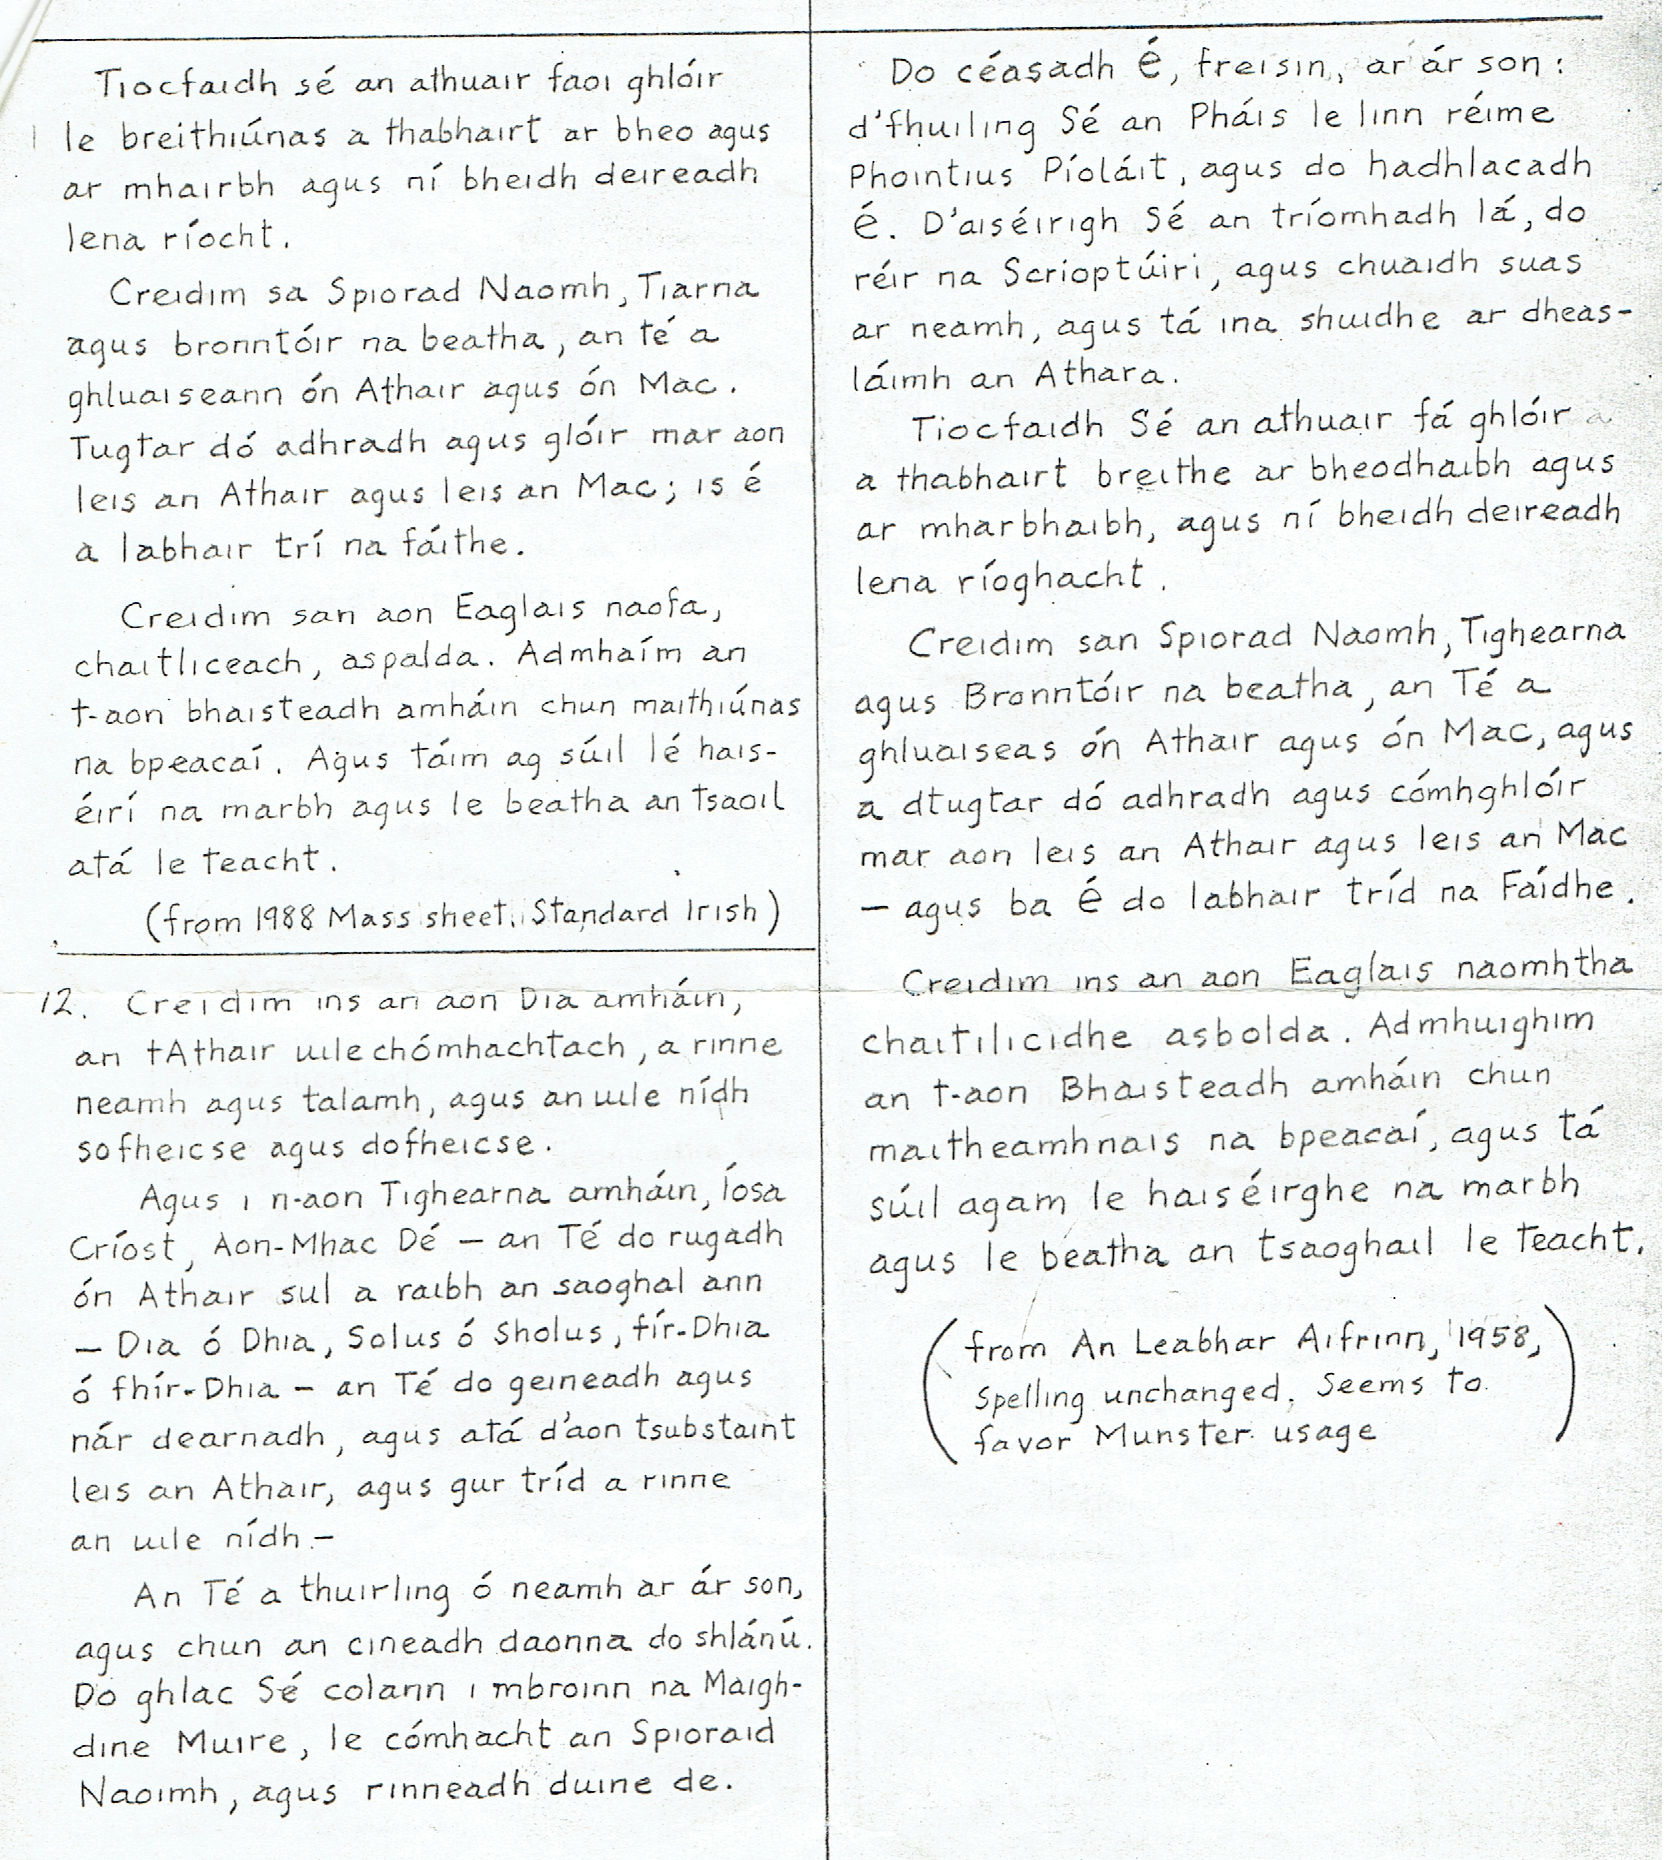 Tiocfaidh sé an athuair faoi ghlóir
le breithiúnas a thabhairt ar bheo agus
ar mhairbh agus ní bheidh deireadh
lena ríocht.
Creidim sa Spiorad Naomh, Tiarna
agus bronntóir na beatha, an té a
ghluaiseann ón Athair agus ón Mac.
Tugtar dó adhradh agus glóir mar aon
leis an Athair agus leis an Mac; is é
a labhair trí na fáithe.
Creidim san aon Eaglais naofa,
chaitliceach, aspalda. Admhaím an
t-aon bhaisteadh amháin chun maithiúnas
na bpeacaí. Agus táim ag súil lé hais-
éirí na marbh agus le beatha an tsaoil
atá le teacht.
(from 1988 Mass sheet. Standard Irish)
12. Creidim ins an aon Dia amháin,
an tAthair uilechómhachtach, a rinne
neamh agus talamh, agus an uile nídh
sofheicse agus dofheicse.
Agus i n-aon Tighearna amháin, Íosa
Críost, Aon-Mhac Dé – an Té do rugadh
ón Athair sul a raibh an saoghal ann
– Dia ó Dhia, Solus ó Sholus, fír-Dhia
ó fhír-Dhia – an Té do geineadh agus
nár dearnadh, agus atá d'aon tsubstaint
leis an Athair, agus gur tríd a rinne
an uile nídh –
An Té a thuirling ó neamh ar ár son,
agus chun an cineadh daonna do shlánú.
Do ghlac Sé colann i mbroinn na Maigh-
dine Muire, le cómhacht an Spioraid
Naoimh, agus rinneadh duine de.
Do céasadh É, freisin, ar ár son:
d'fhuiling Sé an Pháis le linn réime
Phointius Píoláit, agus do hadhlacadh
É. D'aiséirigh Sé an tríomhadh lá, do
réir na Scrioptúiri, agus chuaidh suas
ar neamh, agus tá ina shuidhe ar dheas-
láimh an Athara.
Tiocfaidh Sé an athuair fá ghlóir
a thabhairt breithe ar bheodhaibh agus
ar mharbhaibh, agus ní bheidh deireadh
lena ríoghacht.
Creidim san Spiorad Naomh, Tighearna
agus Bronntóir na beatha, an Té a
ghluaiseas ón Athair agus ón Mac, agus
a dtugtar dó adhradh agus cómhghlóir
mar aon leis an Athair agus leis an Mac
– agus ba É do labhair tríd na Fáidhe.
Creidim ins an aon Eaglais naomhtha
chaitilicidhe asbolda. Admhuighim
an t-aon Bhaisteadh amháin chun
maitheamhnais na bpeacaí, agus tá
súil agam le haiséirghe na marbh
agus le beatha an tsaoghail le teacht.
(from An Leabhar Aifrinn, 1958,
Spelling unchanged. Seems to
favor Munster usage)